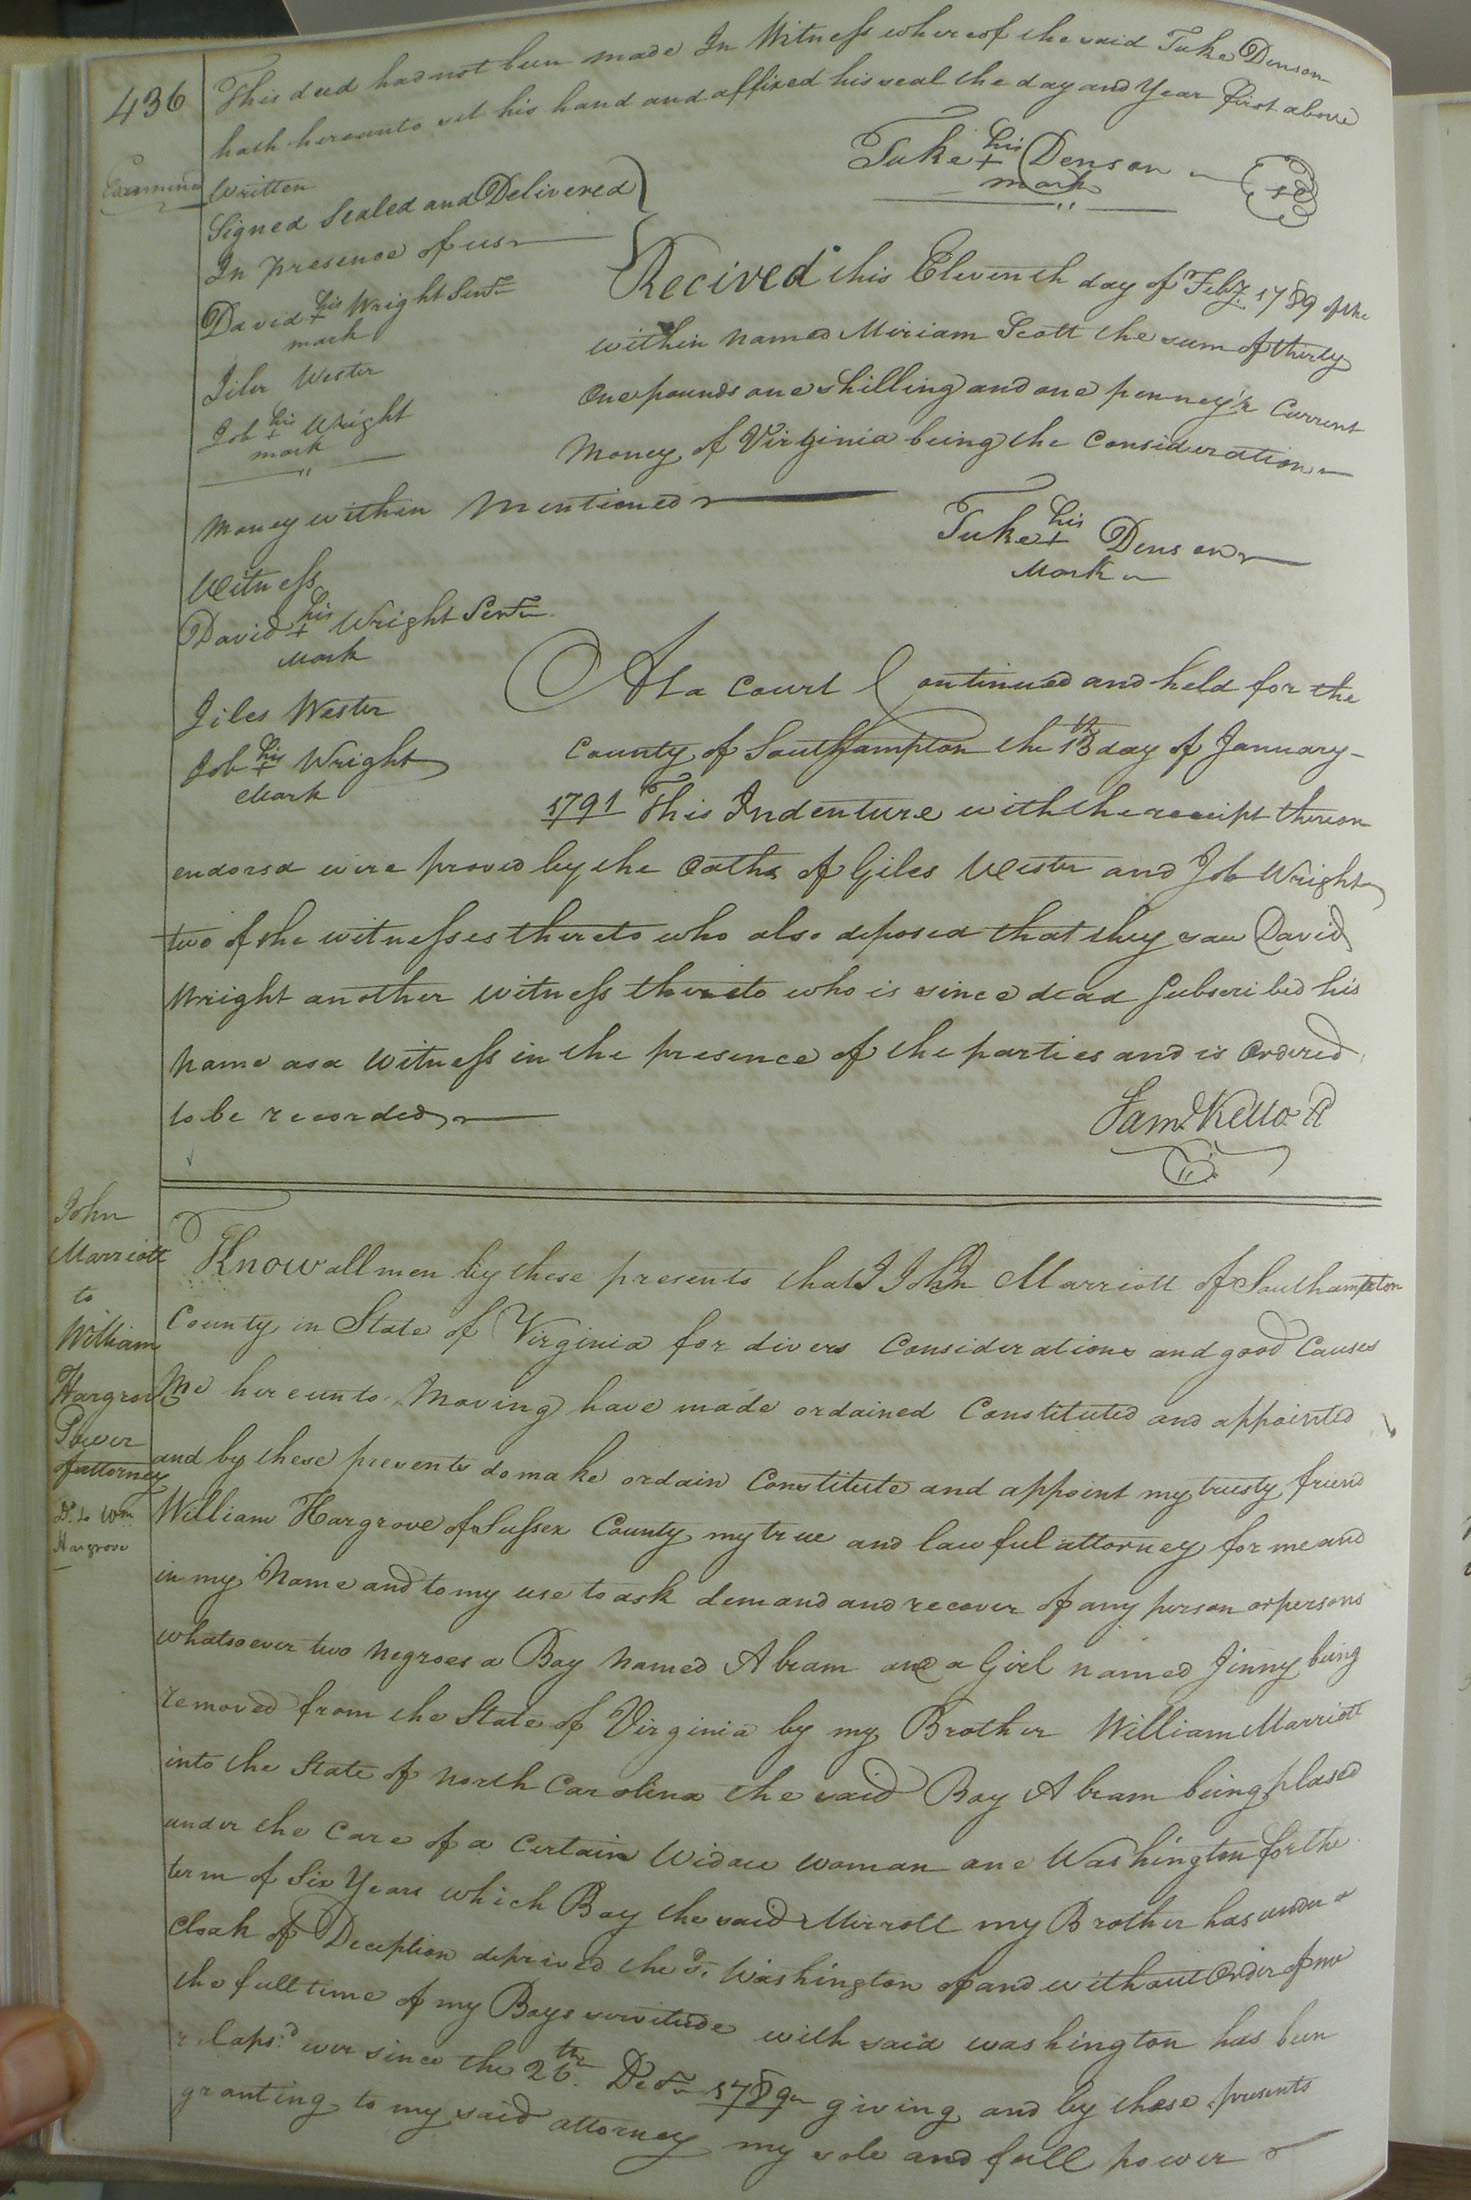 436
This deed had not been made In Witness whereof the said Tuke Denson
hath hereunto set his hand and affixed his seal the day and Year first above
Written
Examined
Tuke his + mark Denson
Signed Sealed and Delivered
In presence of us
David his + mark Wright Senr
Jiles Wester
Job his + mark Wright
Recived this Eleventh day of Feby 1789 of the
within named Miriam Scott the sum of thirty
One pounds one shilling and one penney Current
Money of Virginia being the Consideration
Money within Mentioned
Tuke his + Mark Denson
Witness
David his + Mark Wright Senr
Jiles Wester
Job his + Mark Wright
At a Court Continued and held for the
County of Southampton the 13th day of January
1791 This Indenture with the receipt thereon
endorsd were proved by the Oaths of Giles Wester and Job Wright
two of the witnesses thereto who also deposed that they saw David
Wright another witness thereto who is since dead Subscribed his
Name as a Witness in the presence of the parties and is Ordered
to be recorded
Saml Kello
John
Marriott
to
William
Hargrov
Power
of attorney
Dd. to Wm
Hargrove
Know all men by these presents that I John Marriott of Southampton
County in State of Virginia for divers Considerations and good Causes
Me hereunto Moving have made ordained Constituted and appointed
and by these presents do make ordain Constitute and appoint my trusty friend
William Hargrove of Sussex County my true and lawful attorney for me and
in my Name and to my use to ask demand and recover of any person or persons
whatsoever two Negroes a Boy Named Abram and a Girl named Jinny being
removed from the State of Virginia by my Brother William Marriott
into the State of North Carolina the said Boy Abram being plased
under the Care of a Certain Widow woman one Washington for the
term of Six Years which Boy the said Mirrott my Brother has under a
Cloak of Deception deprived the sd. Washington of and without Order of me
the full time of my Boys servitude with said washington has been
elaps'd ever since the 26th Decr 1789 giving and by these presents
granting to my said attorney my sole and full power